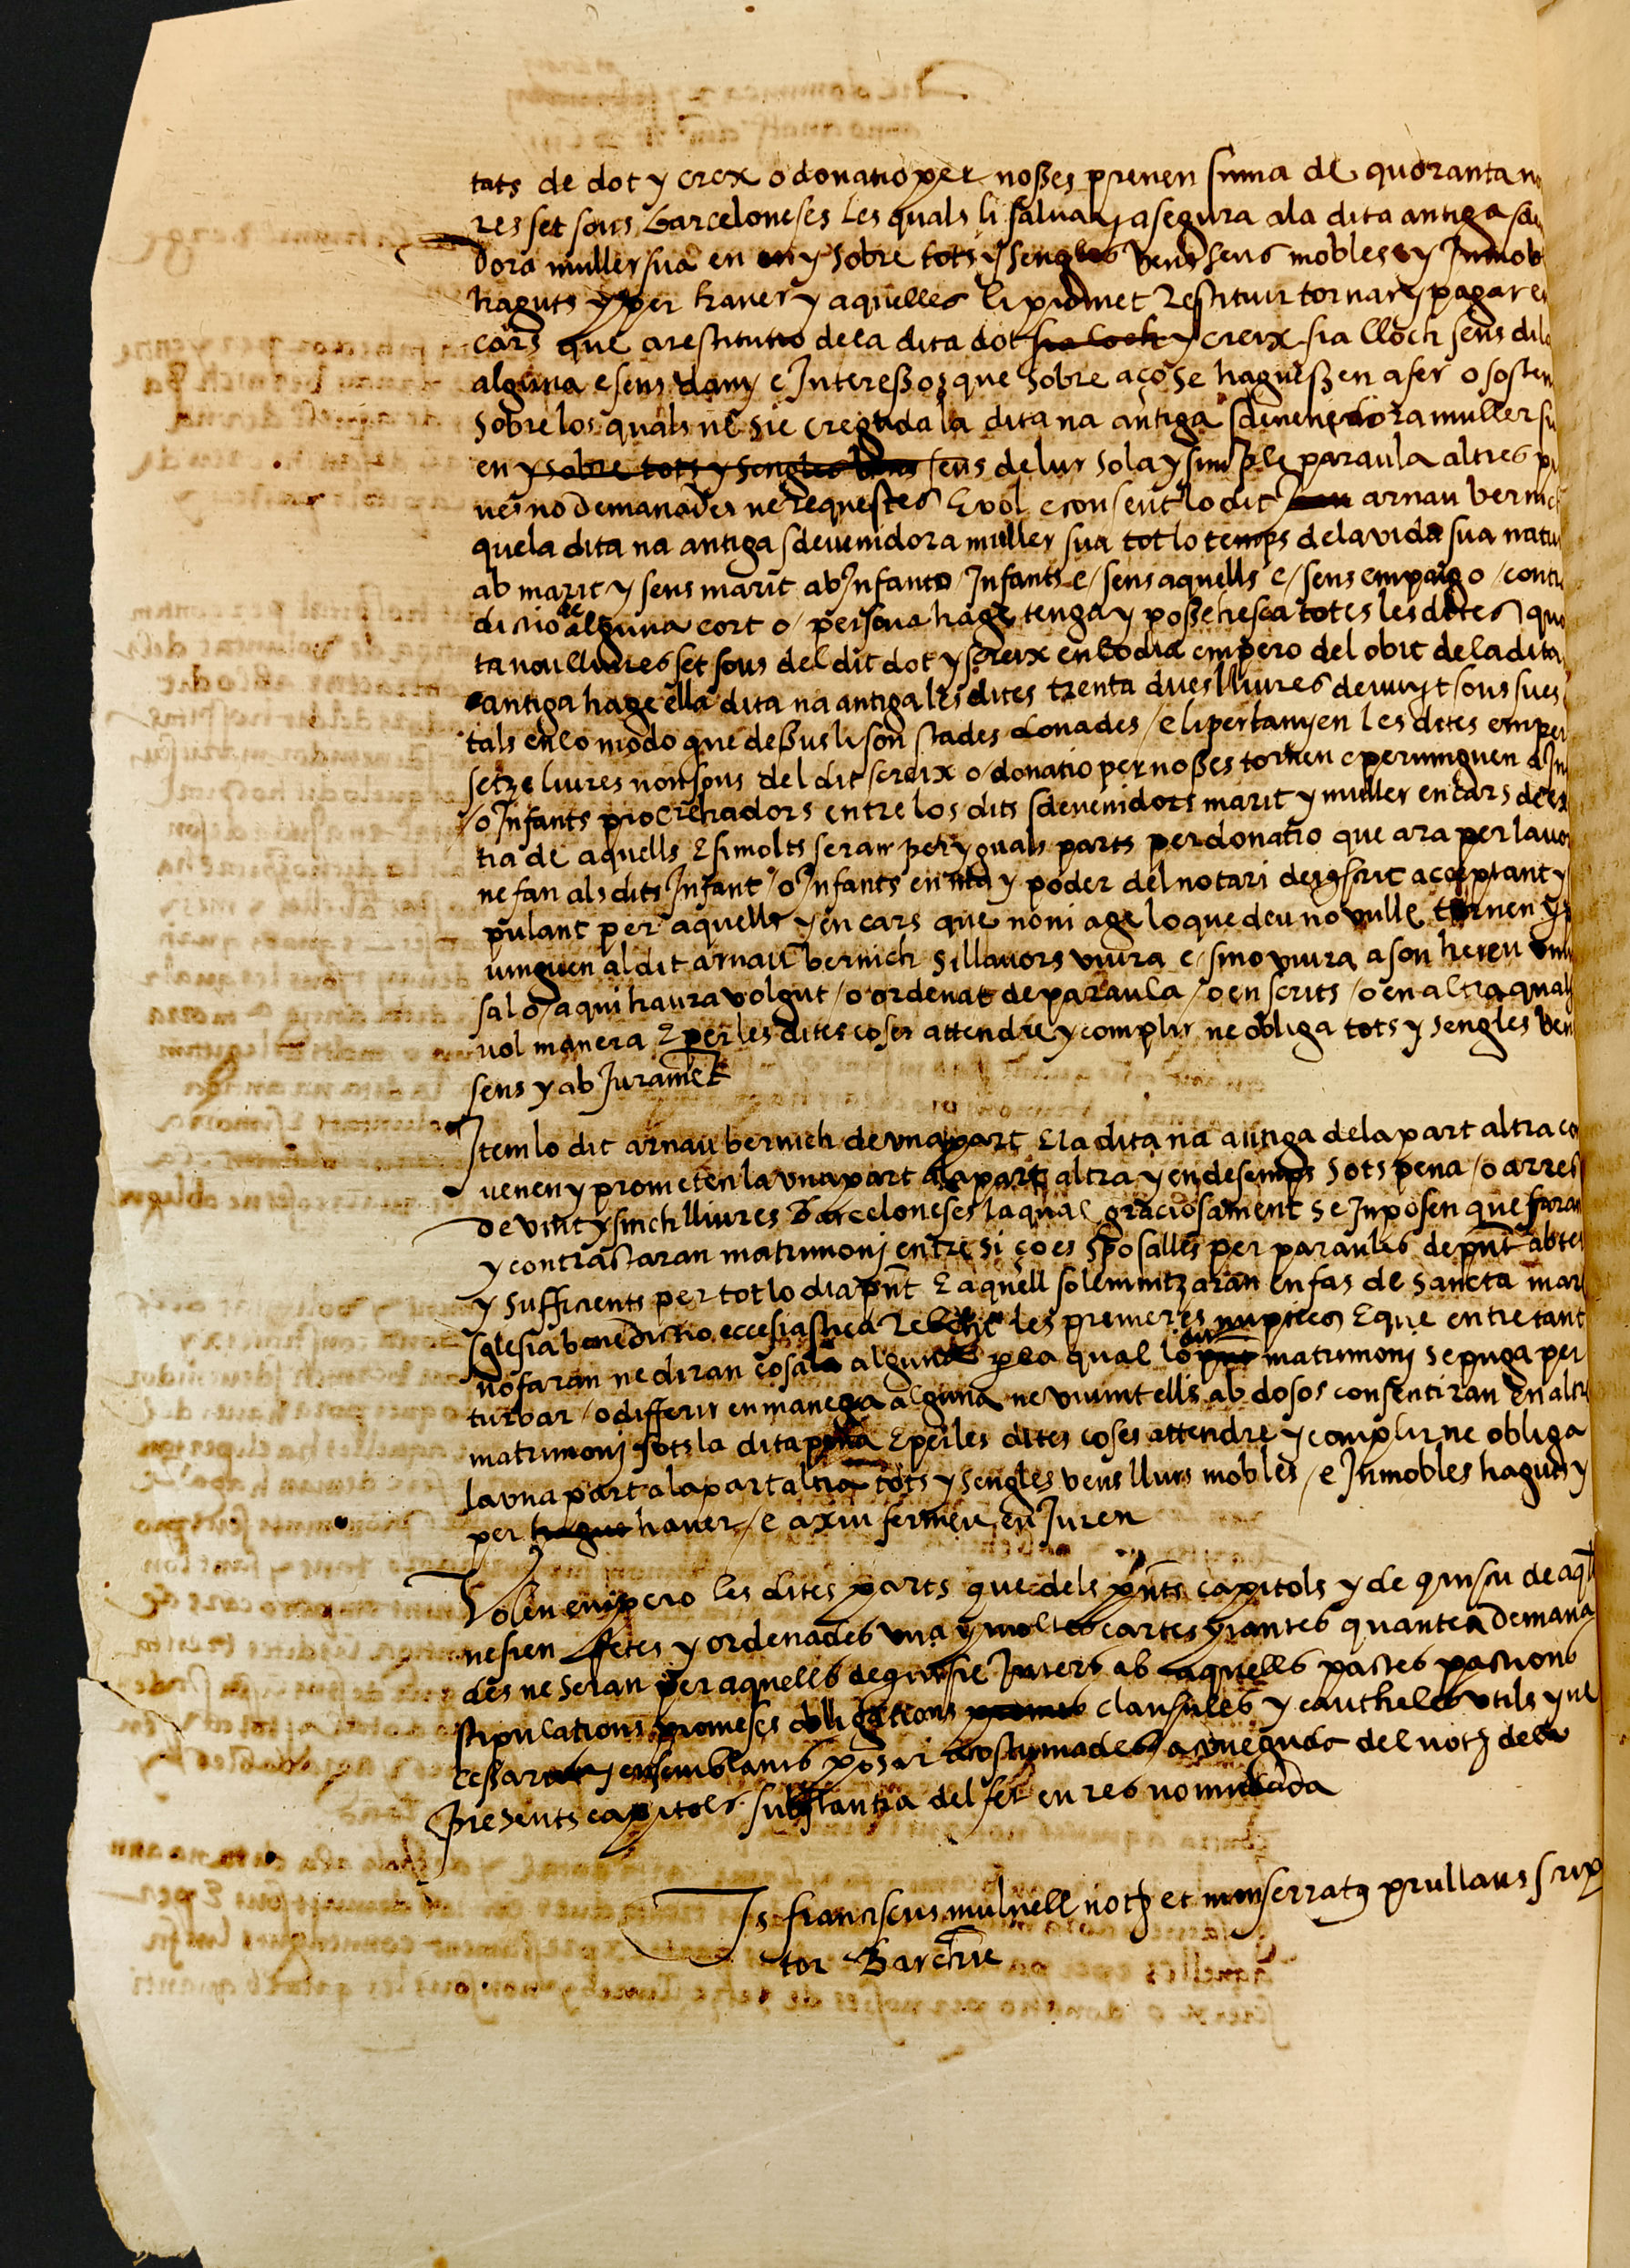 tats de dot y creix o donatio per nosses prenen suma de quoranta no
res set sous barceloneses les quals li salva y asegura a la dita antiga sde
dora muller sua en y sobre tots y sengles bens seus mobles y Inmob
haguts y per haver y aquelles li promet restituir tornar y pagar en
cars que a restitutio de la dita dot sia loch y creix sia lloch sens dila
alguna e sens dany e Interessos que sobre aço se haguessen a fer o sosten
sobre los quals ne sie creguda la dita na antiga sdevenidora muller su
en y sobre tots y sengles bens seus de lur sola y simple paraula altres pr
ves no demanades ne requestes E vol e consent lo dit arnau bernich
que la dita na antiga sdevenidora muller sua tot lo temps de la vida sua natu
ab marit y sens marit ab Infant o Infants e / sens aquells e / sens empaig o / contra
dictio de alguna cort o / persona hage tenga y possehesca totes les dites quo
ta nou lliures set sous del dit dot y screix en lo dia empero del obit de la dita
antiga hage ella dita na antiga les dites trenta dues lliures devuyt sous sues
tals en lo modo que dessus li son stades donades / e li pertanyen les dites emper
setze liures nou sous del dit screix o / donatio per nosses tornen e pervinguen a In
/ o Infants procrehadors entre los dits sdevenidors marit y muller en cars de ex
tia de aquells E si molts seran per yguals parts per donatio que ara per lavor
ne fan als dits Infant / o Infants en ma y poder del notari deiqscrit acceptant y
pulant per aquells y en cars que noni age lo que deu no vulle tornen y p
vinguen al dit arnau bernich si llavors viura e / sino viura a son hereu univ
sal o / a qui haura volgut / o ordenat de paraula / o en scrits / o en altra quals
vol manera E per les dites coses attendre y complir ne obliga tots y sengles ben
sens y ab Jurament
Item lo dit arnau bernich de una part E la dita na antiga de la part altra co
venen y prometen la una part a la part altra y en desemps sots pena / o arres
de vint y sinch lliures Barceloneses la qual graciosament se Inposen que faran
y contractaran matrimonj entre si ço es sposalles per paraules de pnt abtes
y sufficients per tot lo dia pnt E aquell solemnitzaran en fas de sancta mare
sglesia benedictio ecclesiastica rebent les premeres nupties E que entretant
no faran ne diran cosa alguna p la qual lo dit matrimonj se puga per
turbar / o differir en manera alguna ne vivint ells ab dosos consentiran en altre
matrimonj sots la dita pena E per les dites coses attendre y complir ne obliga
la una part a la part altra tots y sengles bens llurs mobles / e Inmobles haguts y
per hagut haver / e axiu fermen en Juren
Volen empero les dites parts que dels pnts capitols y de qnscu de aqlls
ne sien fetes y ordenades una y moltes cartes tantes quantes demana
des ne seran per aquells de qui sie Interes ab aquells pactes pactions
stipulations promeses obligations clausules y cautheles utils y ne
cessaries y en semblants posar acostumades a coneguda del noty dels
presents capitols substantia del fet en res no mudada
Ts franciscus mulnell noty et monserratq prullans scrip
tor Barchne